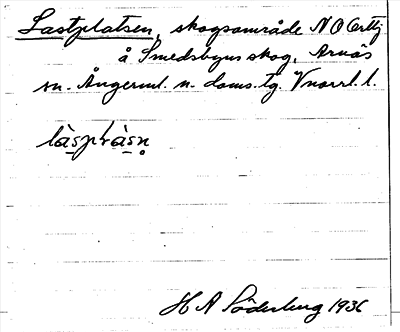 Lastplatsen, skogsområde N O
å Smedsbyns skog, Arnäs
sn. Ångerml. n. doms.tg. Vnorrl. l.
H A Söderberg 1936